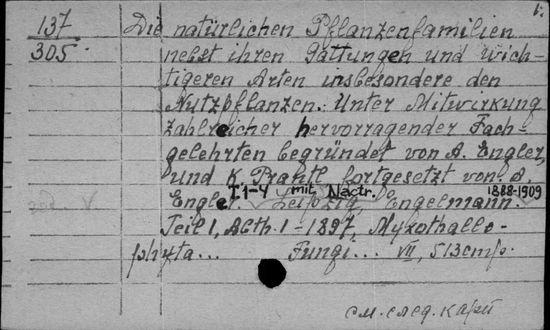 137
305.
1.
Die natürlichen Pflanzenfamilien
nebst ihren Gattungen und wich-
tigeren Arten insbesondere den
Nutzpflanzen. Unter Mitwirkung
zahlreicher hervorragender Fach-
gelehrten begründet von A. Engler,
und K. Prantl fortgesetzt von A.
Engler. T. 1-4 mit Nactr. 1888-1909
Leipzig, Engelmann.
Teil 1, Abth. 1 - 1897, Mykothallo-
phyta... Fungi... VII, 513 стр.
см. след. карт